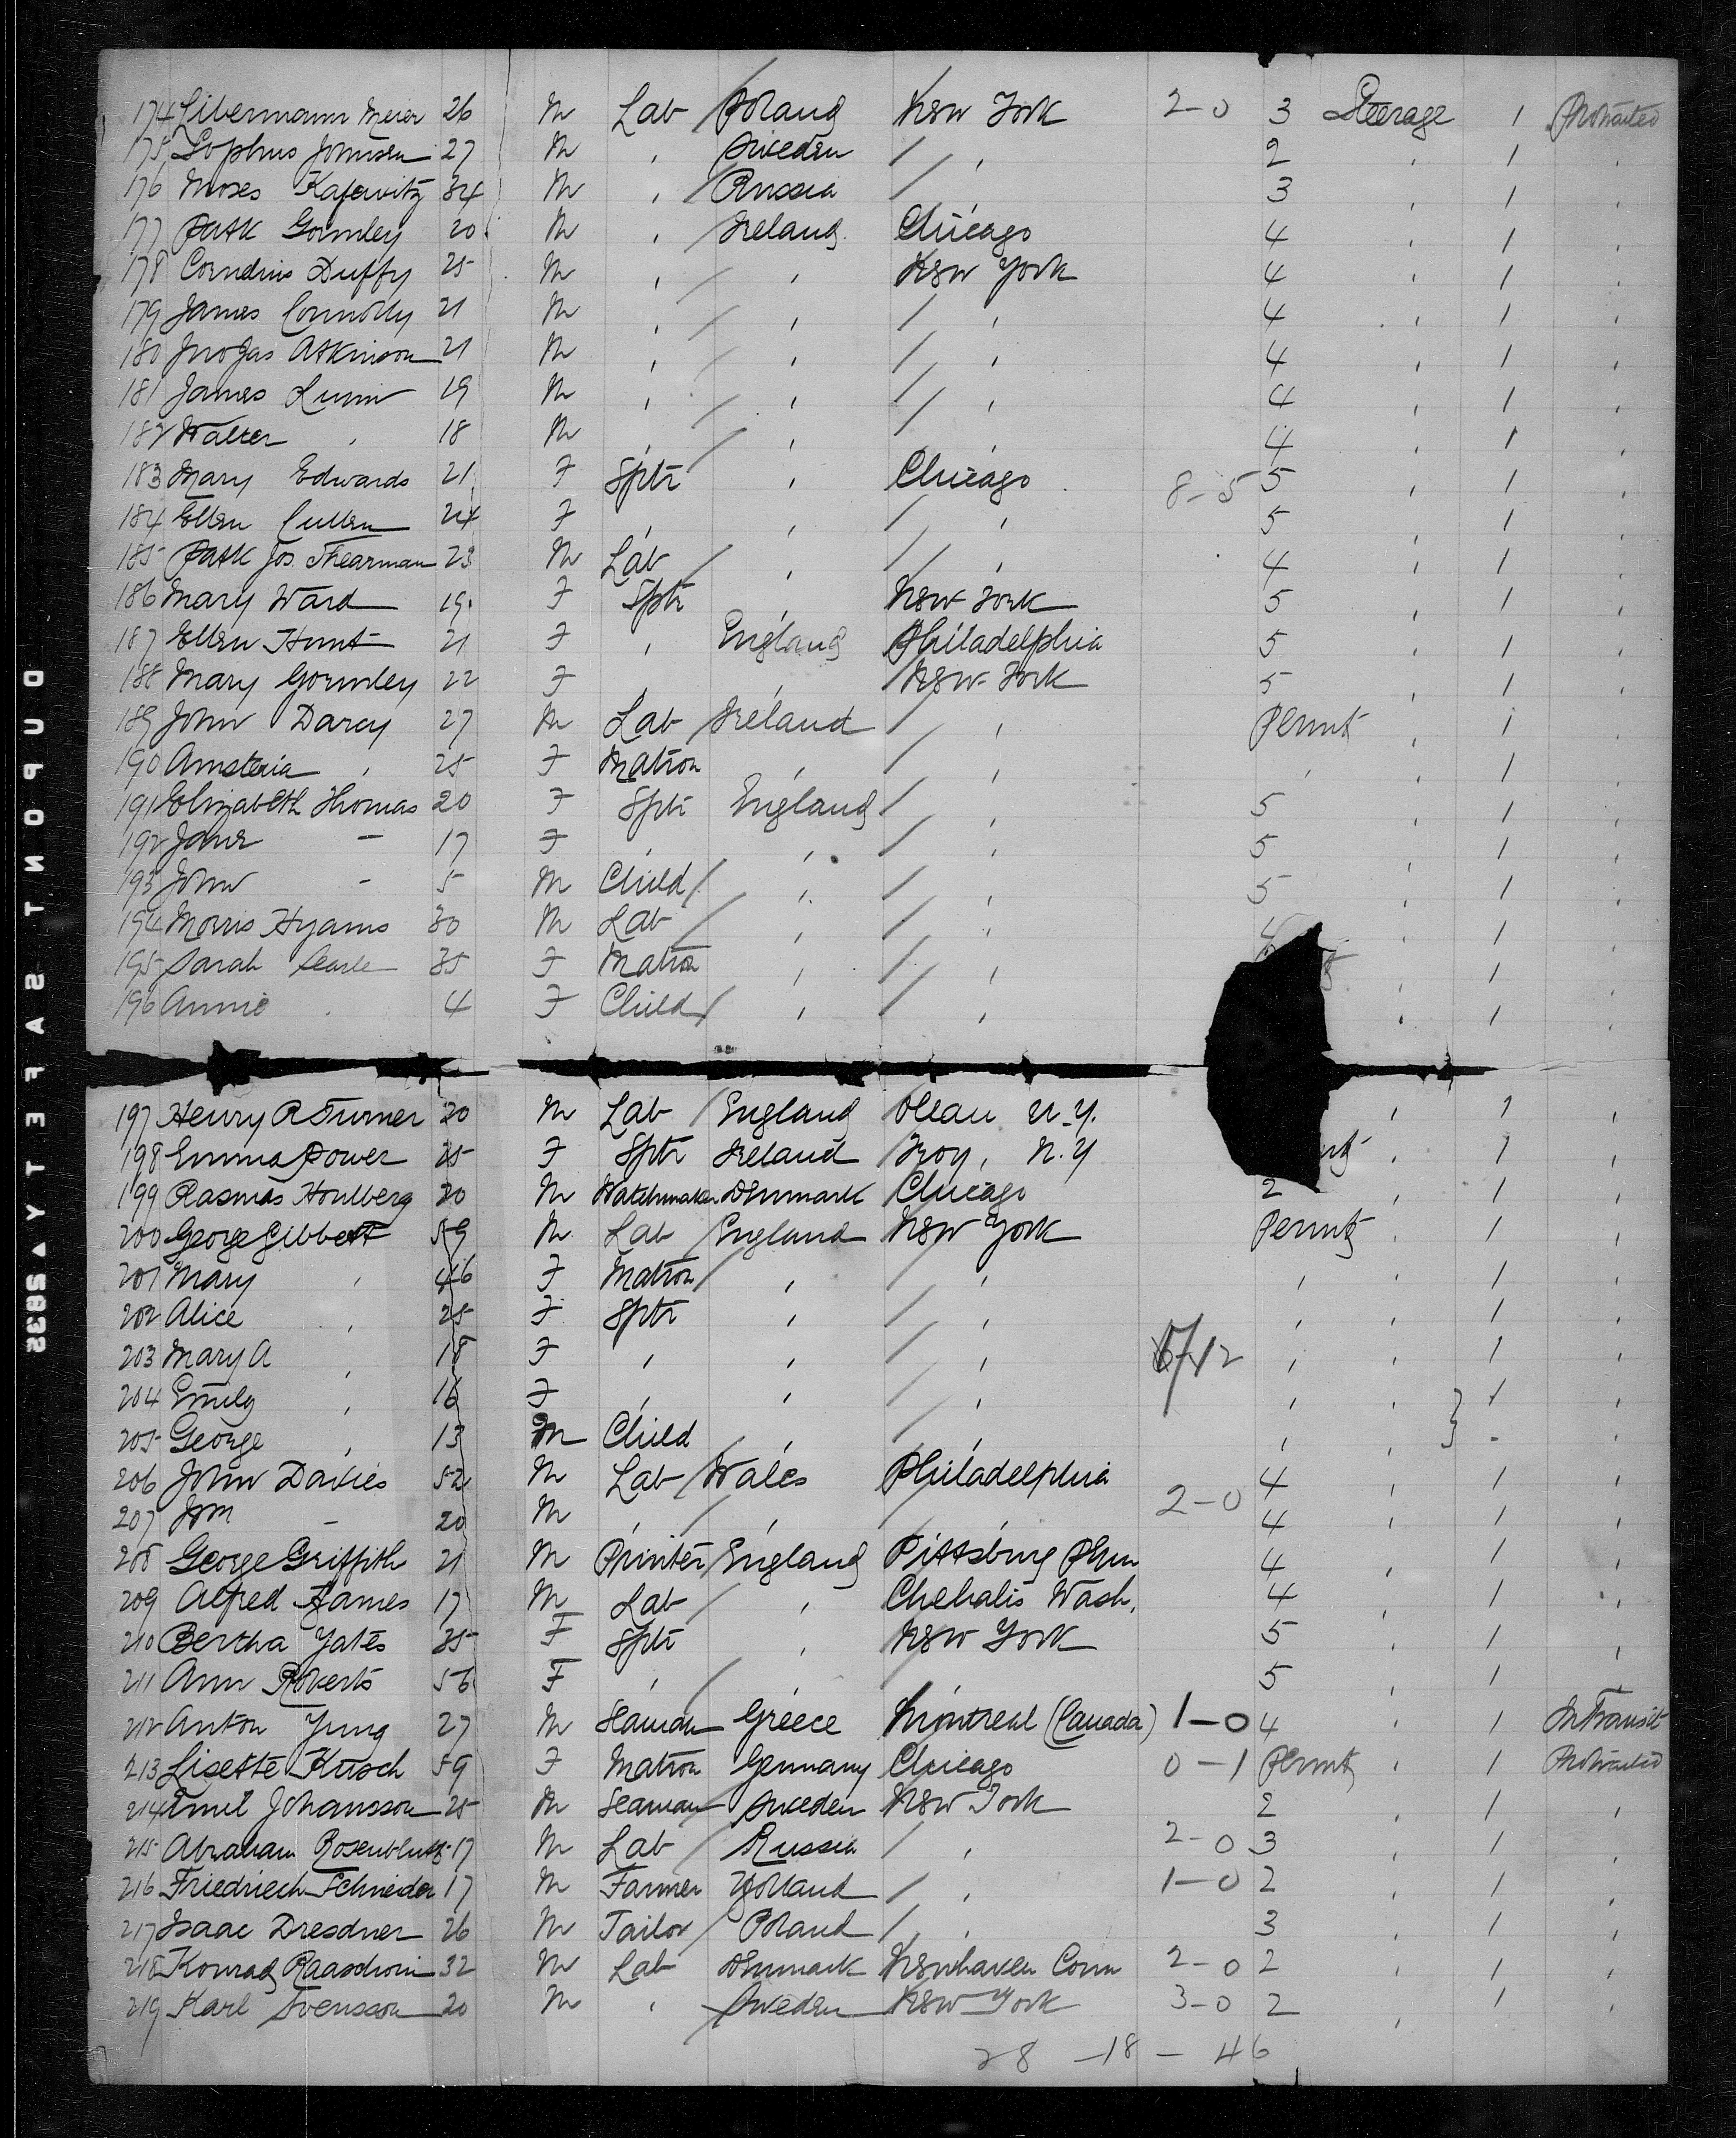 174 Libermann Meier 26 M Lab Poland New York 2-0 3 Steerage 1 Protracted
175 Sophus Johnsen 27 M , Sweden / , 2 , 1 ,
176 Moses 34 M , Russia / , 3 , 1 ,
177 Patk Gormley 20 M , Ireland Chicago 4 , 1 ,
178 Cornelius Duffy 25 M , , New York 4 , 1 ,
179 James Connolly 21 M , , / , 4 , 1 ,
180 Jno Jas Atkinson 21 M , , / , 4 , 1 ,
181 James 19 M , , / , 4 , 1 ,
182 Walter , 18 M , , / , 4 , 1 ,
183 Mary Edwards 21 F Sptr , Chicago 8-5 5 , 1 ,
184 Ellen Cullen 24 F , , / , 5 , 1 ,
185 Patk Jos. 23 M Lab , / , 4 , 1 ,
186 Mary Ward 19 F Sptr , New York 5 , 1 ,
187 Ellen Hunt 21 F , England Philadelphia 5 , 1 ,
188 Mary Gormley 22 F , , New York 5 , 1 ,
189 John Darcy 27 M Lab Ireland / , Permt , 1 ,
190 , 25 F Matron , / , , , 1 ,
191 Elizabeth Thomas 20 F Sptr England / , 5 , 1 ,
192 Jane - 17 F , , / , 5 , 1 ,
193 John - 5 M Child , / , 5 , 1 ,
194 Morris Hyams 30 M Lab , / , , 1 ,
195 Sarah Searle 35 F Matron , / , , 1 ,
196 Annie , 4 F Child , / , , 1 ,
197 Henry R Turner 20 M Lab England Olean N.Y. , 1 ,
198 Emma Power 25 F Sptr Ireland Troy, N.Y , 1 ,
199 Rasmus Houlberg 20 M Watchmaker Denmark Chicago 2 , 1 ,
200 George Gibbett 59 M Lab England New York Permt , 1 ,
201 Mary , 46 F Matron , / , , , 1 ,
202 Alice , 25 F Sptr , / , , , 1 ,
203 Mary A , 18 F , , / , , , 1 ,
204 Emily , 16 F , , / , , , 1 ,
205 George , 13 M Child , / , , , - ,
206 John Davies 52 M Lab Wales Philadelphia 4 , 1 ,
207 - 20 M , , / , 2-0 4 , 1 ,
208 George Griffith 21 M Printer England Pittsburg Penn 4 , 1 ,
209 Alfred James 17 M Lab , Chehalis Wash. 4 , 1 ,
210 Bertha Yates 35 F Sptr , New York 5 , 1 ,
211 Ann Roberts 56 F , , / 5 , 1 ,
212 Anton Jung 27 M Seaman Greece Montreal (Canada) 1-0 4 , 1 In Transit
213 Lisette Kusch 59 F Matron Germany Chicago 0-1 Permt , 1 Protracted
214 Emil Johansson 25 M Seaman Sweden New York 2 , 1 ,
215 Abraham 17 M Lab Russia / , 2-0 3 , 1 ,
216 Friedriech Schneider 17 M Farmer Holland / , 1-0 2 , 1 ,
217 Isaac Dresdner 26 M Tailor Poland / , 3 , 1 ,
218 Konrad 32 M Lab Denmark Newhaven Conn 2-0 2 , 1 ,
219 Karl Svensson 20 M , Sweden New York 3-0 2 , 1 ,
28 -18 - 46
DUPONT SAFETY